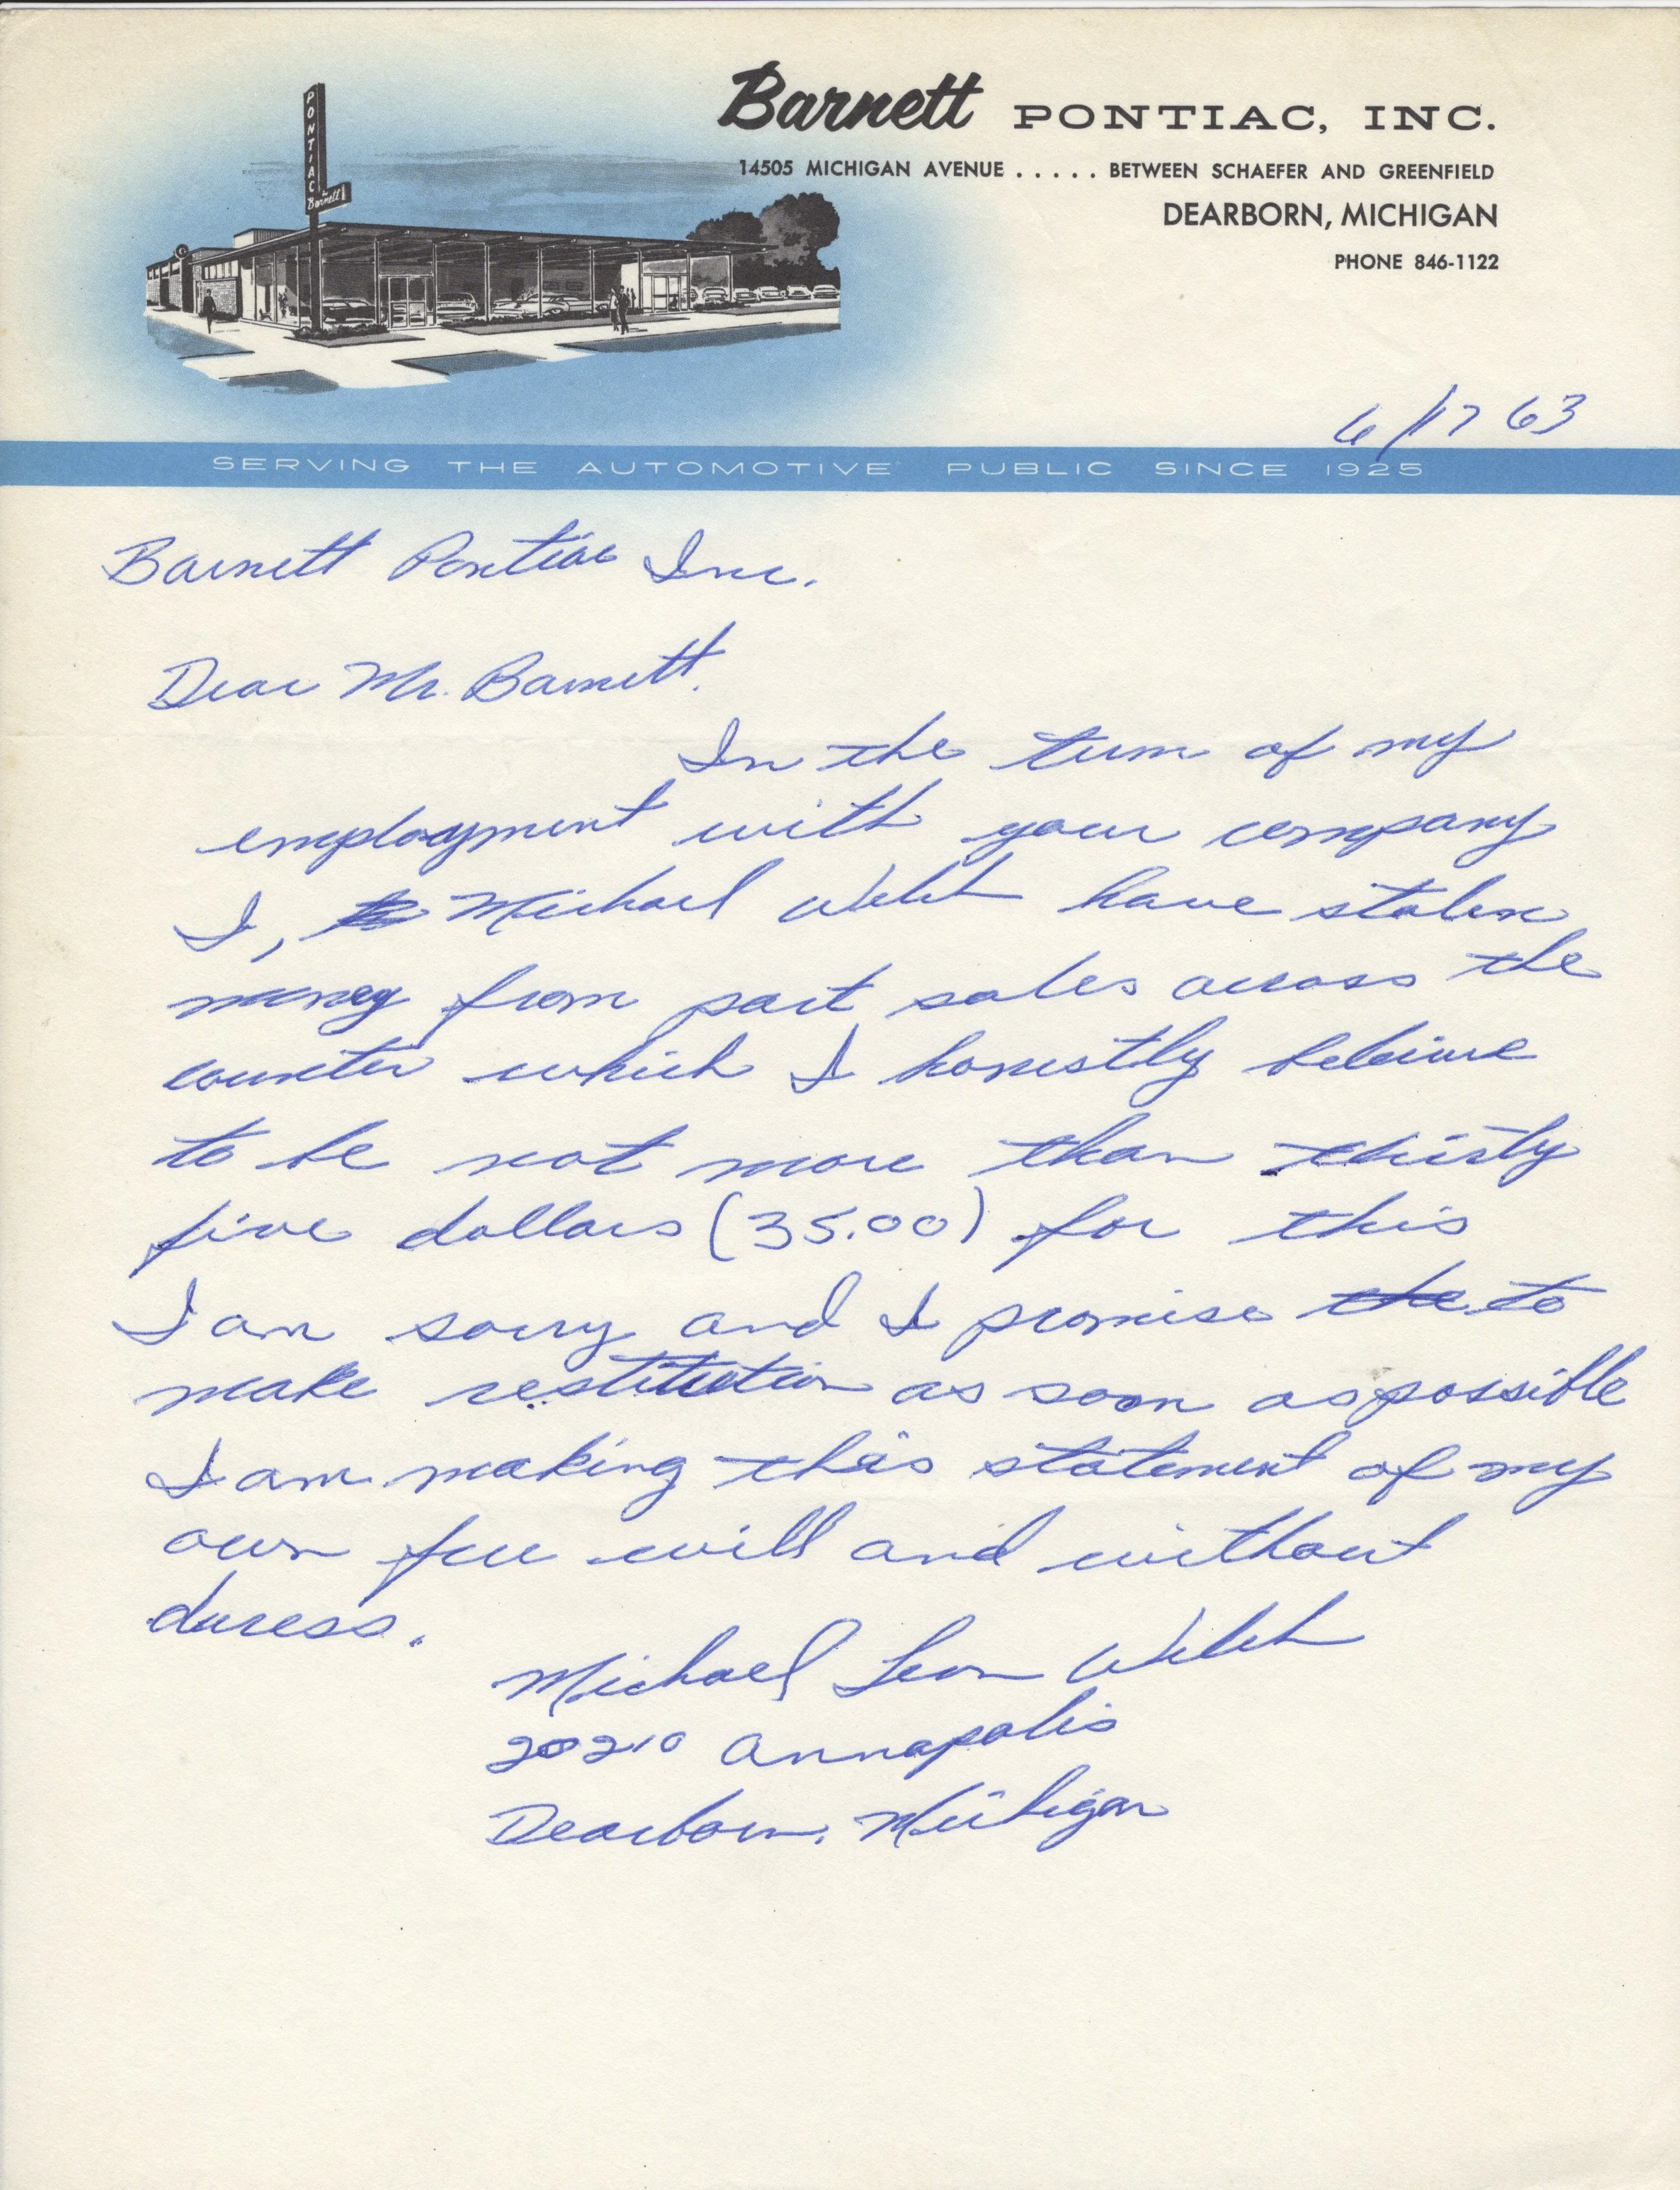 PONTIAC
Barnett
Barnett PONTIAC, INC.
14505 MICHIGAN AVENUE . . . . . BETWEEN SCHAEFER AND GREENFIELD
DEARBORN, MICHIGAN
PHONE 846-1122
6/17 63
SERVING THE AUTOMOTIVE PUBLIC SINCE 1925
Barnett Pontiac Inc.
Dear Mr. Barnett.
In the turm of my
employment with your company
I, Michael Welch have stolen
money from part sales across the
counter which I honestly beleive
to be not more than thirty
five dollars (35.00) for this
I am sorry and I promise the to
make restitution as soon as possible
I am making this statement of my
own free will and without
duress.
Michael Leon Welch
20210 Annapolis
Dearborn, Michigan